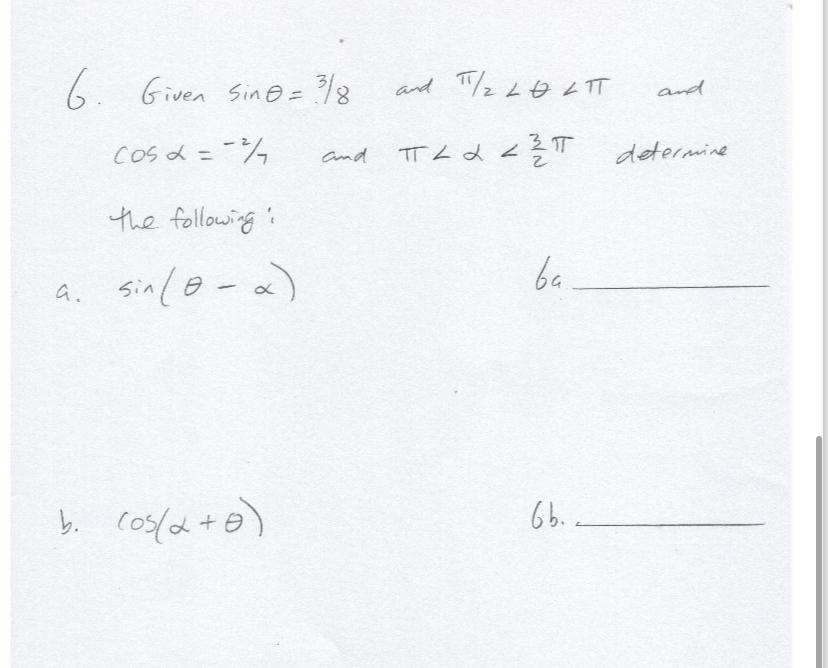 6. Given sinθ = 3/8 and π/2 < θ < π and
cos α = -2/7 and π < α < 3/2 π determine
the following:
a. sin(θ - α) 6a.
b. cos(α + θ) 6b.